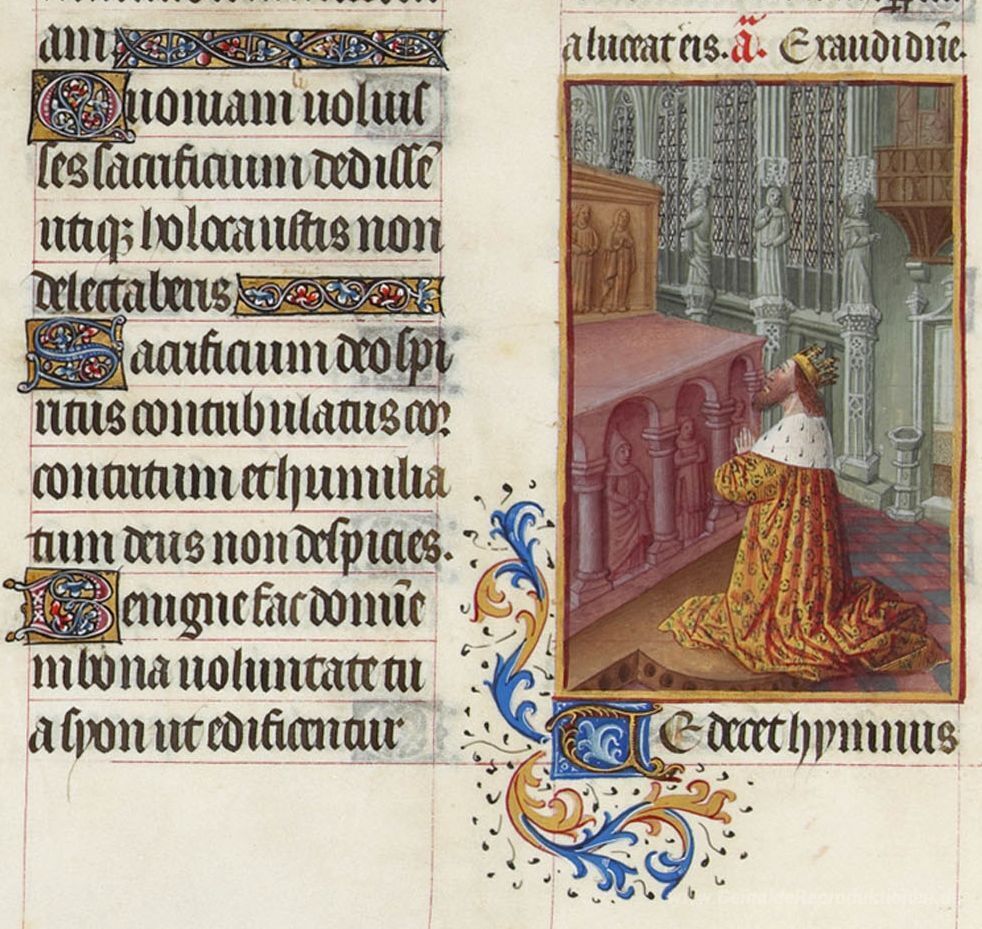 am.
Quoniam uoluis
ses sacrificium dedissē
utiq; holocaustis non
delectaberis
Sacrificium deo spi
ritus contribulatus cor
contritum et humilia
tum deus non despicies.
Benigne fac domīe
in bona uoluntate tu
a syon ut edificentur
a luceat eis. a̅. Exaudi dn̄e.
TE decet hymnus